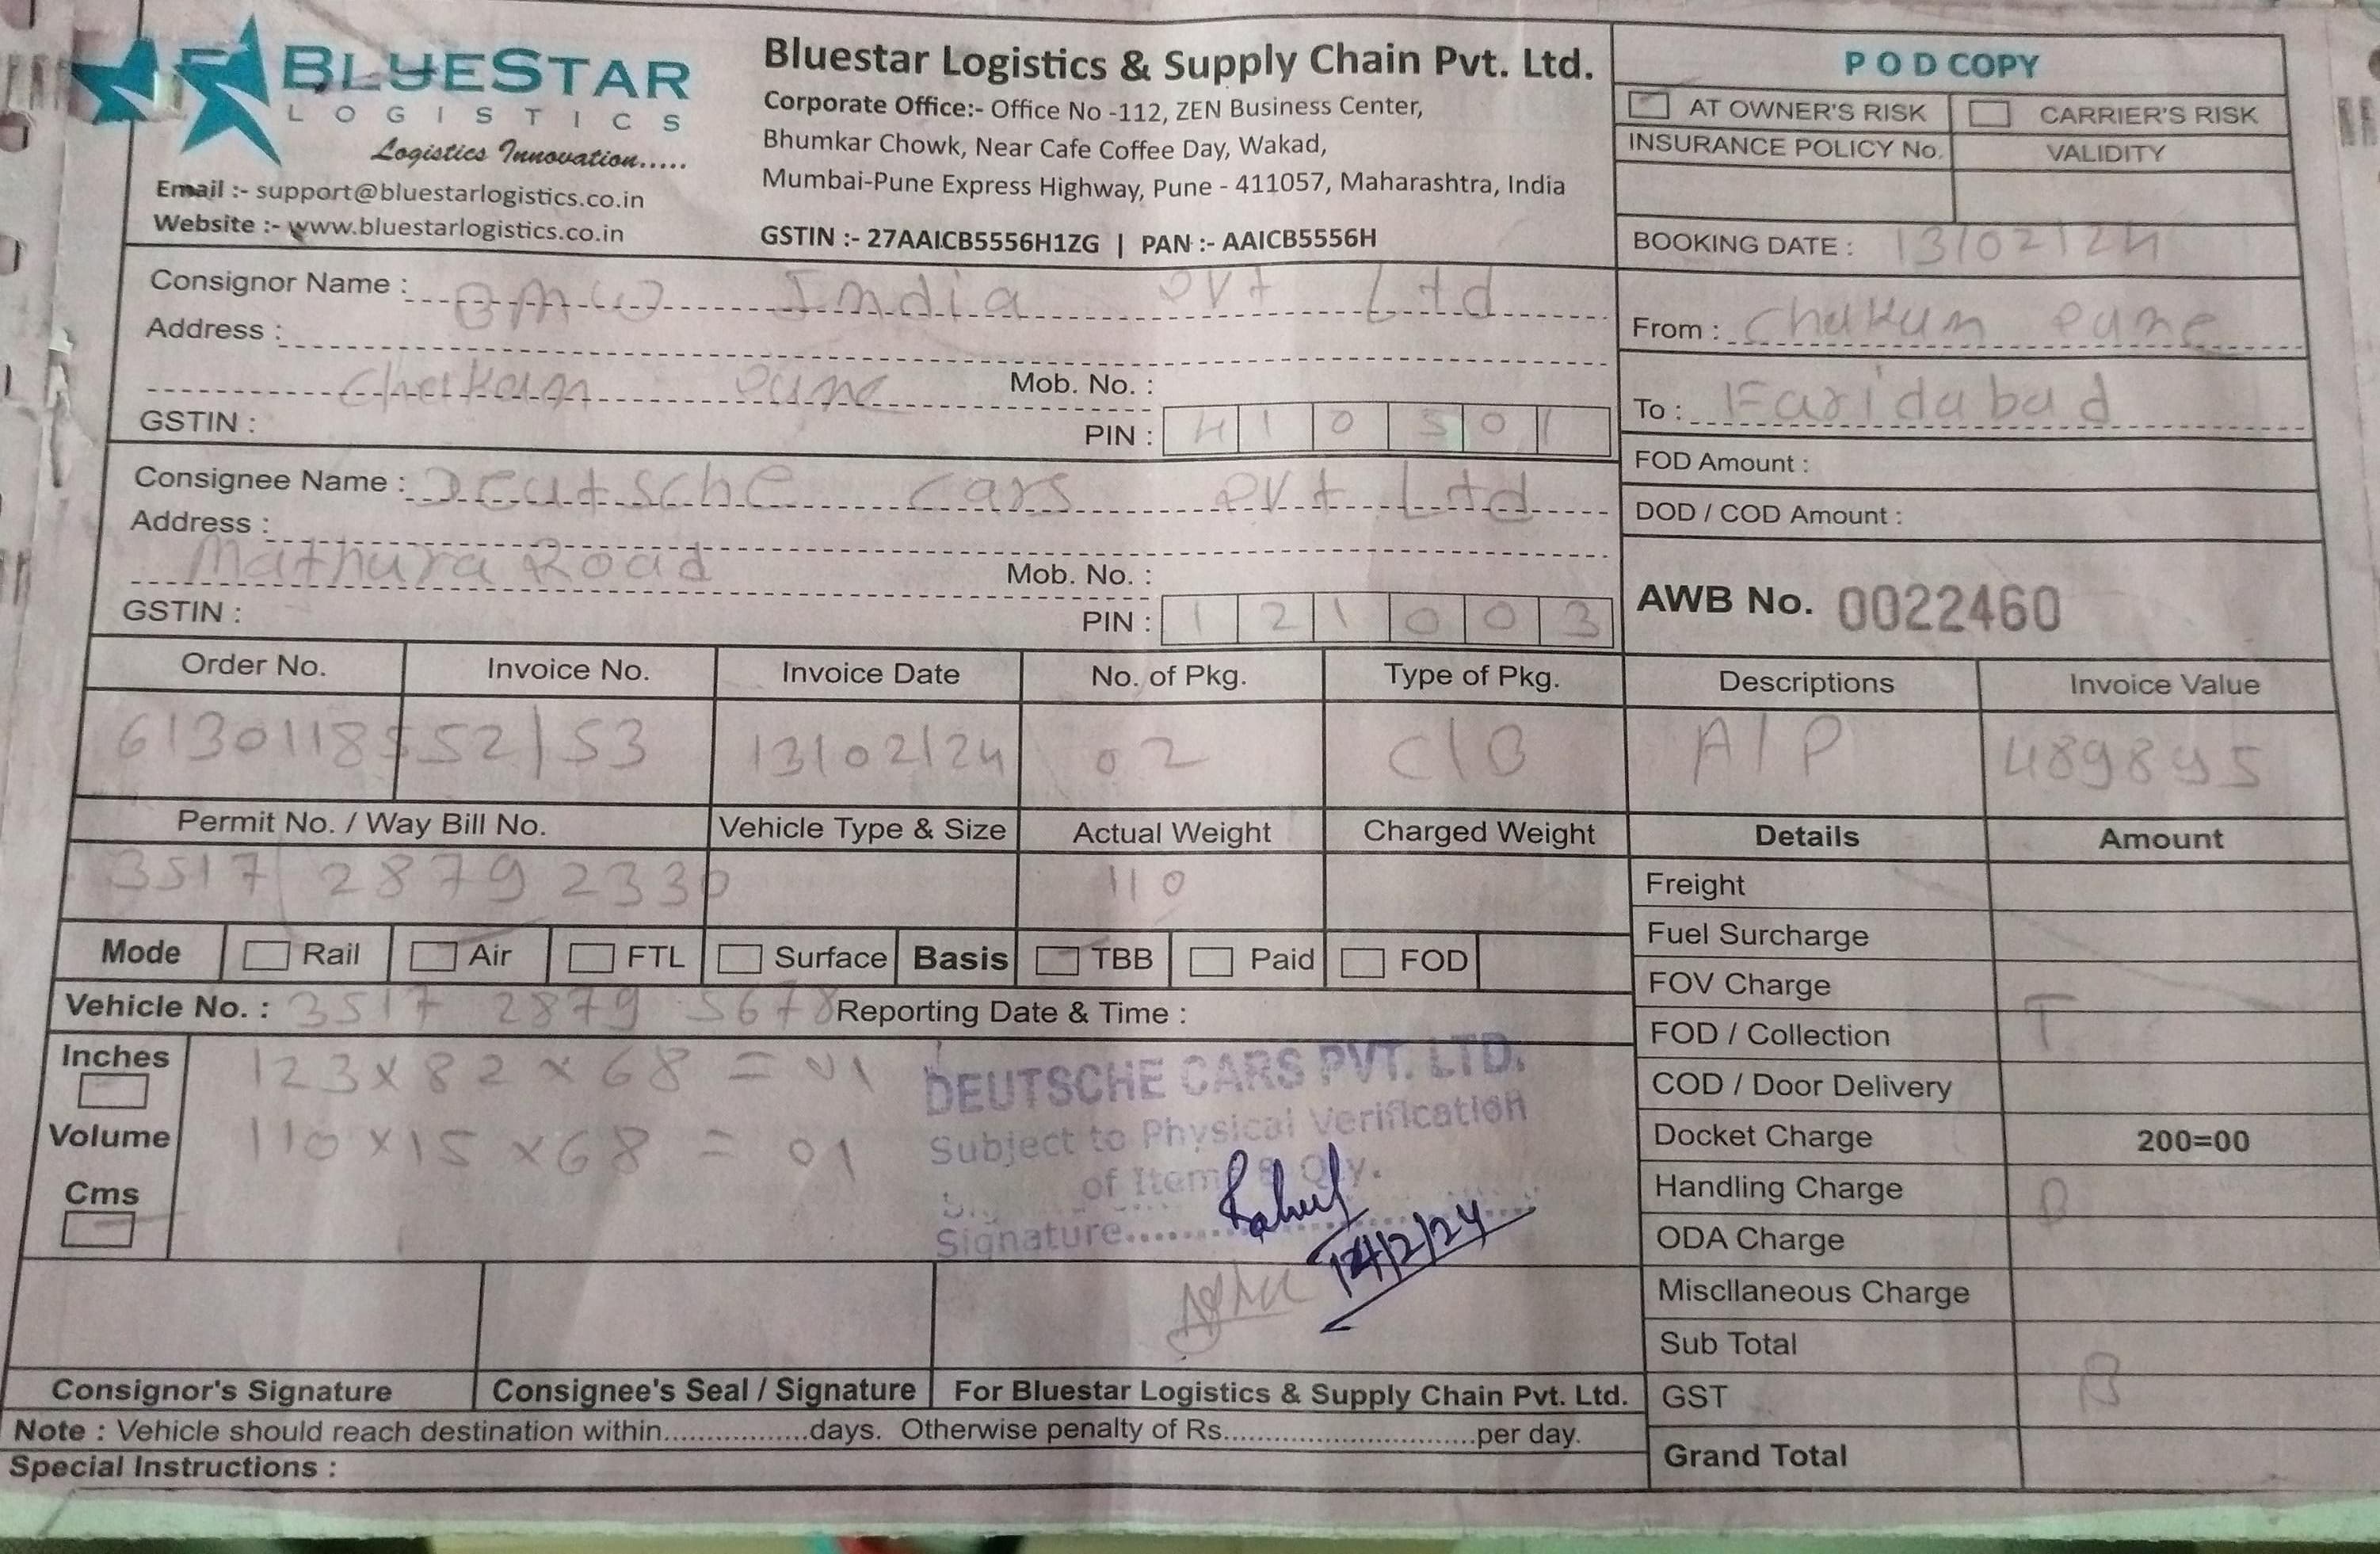 BLUESTAR
LOGISTICS
Logistics Innovation.....
Email :- support@bluestarlogistics.co.in
Website :- www.bluestarlogistics.co.in
Bluestar Logistics & Supply Chain Pvt. Ltd.
Corporate Office:- Office No -112, ZEN Business Center,
Bhumkar Chowk, Near Cafe Coffee Day, Wakad,
Mumbai-Pune Express Highway, Pune - 411057, Maharashtra, India
GSTIN :- 27AAICB5556H1ZG | PAN :- AAICB5556H
POD COPY
AT OWNER'S RISK CARRIER'S RISK
INSURANCE POLICY No. VALIDITY
BOOKING DATE : 13/02/24
Consignor Name : BMW India Pvt Ltd
Address :
Chakan Pune Mob. No. :
GSTIN : PIN : 410501
From : Chakan Pune
To : Faridabad
FOD Amount :
DOD / COD Amount :
Consignee Name : Deutsche Cars Pvt Ltd
Address :
Mathura Road Mob. No. :
GSTIN : PIN : 121003
AWB No. 0022460
Order No. Invoice No. Invoice Date No. of Pkg. Type of Pkg. Descriptions Invoice Value
6130118552/53 13/02/24 02 C/B A/P
Permit No. / Way Bill No. Vehicle Type & Size Actual Weight Charged Weight Details Amount
3517 2879 2330 110
Freight
Fuel Surcharge
FOV Charge
FOD / Collection
COD / Door Delivery
Docket Charge 200=00
Handling Charge
ODA Charge
Miscllaneous Charge
Sub Total
GST
Grand Total
Mode Rail Air FTL Surface Basis TBB Paid FOD
Vehicle No. : 3517 2879 5678 Reporting Date & Time :
Inches
Volume
Cms
123 x 82 x 68 = 01
110 x 15 x 68 = 01
DEUTSCHE CARS PVT. LTD.
Subject to Physical Verification
of Item & Qty.
Signature
Rahul
14/2/24
Consignor's Signature Consignee's Seal / Signature For Bluestar Logistics & Supply Chain Pvt. Ltd.
Note : Vehicle should reach destination within.................days. Otherwise penalty of Rs..............................per day.
Special Instructions :